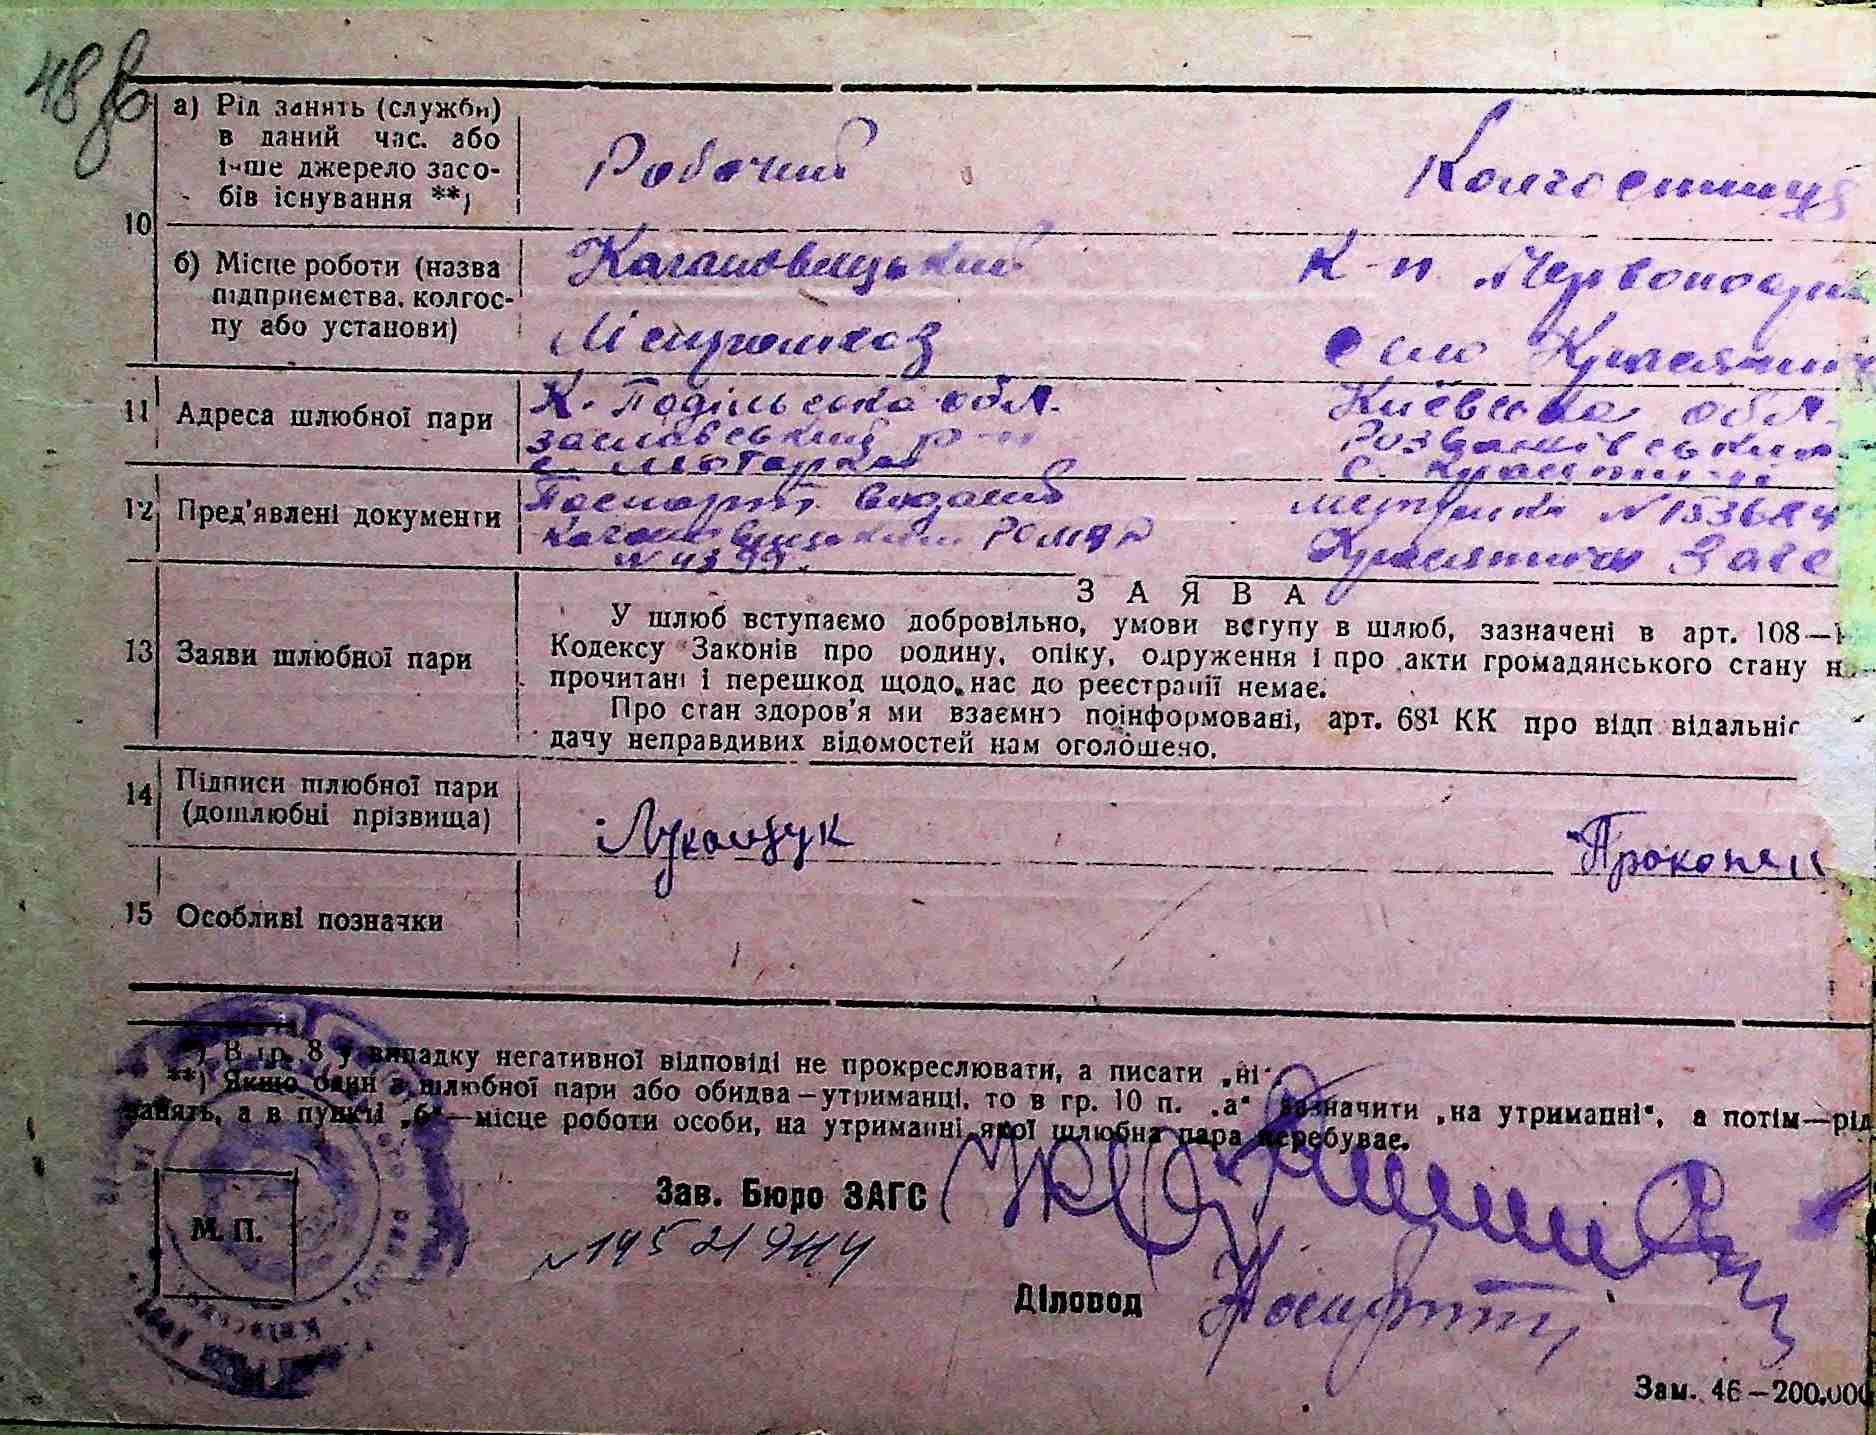 48 зв
а) Рід занять (служби) Робочий Колгоспниця
в даний час. або
інше джерело засо-
бів існування **)
10
б) Місце роботи (назва Кагановицький К-п Червоноар
підприємства, колгос-
пу або установи) Ліспромхоз село Красятич
11 Адреса шлюбної пари К. Подільська обл. Київська обл.
заславський р-н Розважівський
с. с. Красятичі
12 Пред'явлені документи Паспорт виданий метрика N
Кагановицьким РОМ Красятичи Загс
N 4399.
ЗАЯВА
У шлюб вступаємо добровільно, умови вступу в шлюб, зазначені в арт. 108—1
13 Заяви шлюбної пари Кодексу Законів про родину, опіку, одруження і про акти громадянського стану н
прочитані і перешкод щодо нас до реєстрації немає.
Про стан здоров'я ми взаємно поінформовані, арт. 68¹ КК про відп відальніс
дачу неправдивих відомостей нам оголошено.
14 Підписи шлюбної пари
(дошлюбні прізвища) Лукащук Прокопен
15 Особливі позначки
*) В гр. 8 у випадку негативної відповіді не прокреслювати, а писати „ні“.
**) Якщо один з шлюбної пари або обидва—утриманці, то в гр. 10 п. „а“ зазначити „на утриманні“, а потім—рід
занять, а в пункті „б“—місце роботи особи, на утриманні якої шлюбна пара перебуває.
Зав. Бюро ЗАГС
М. П.
Діловод
Зам. 46—200.000